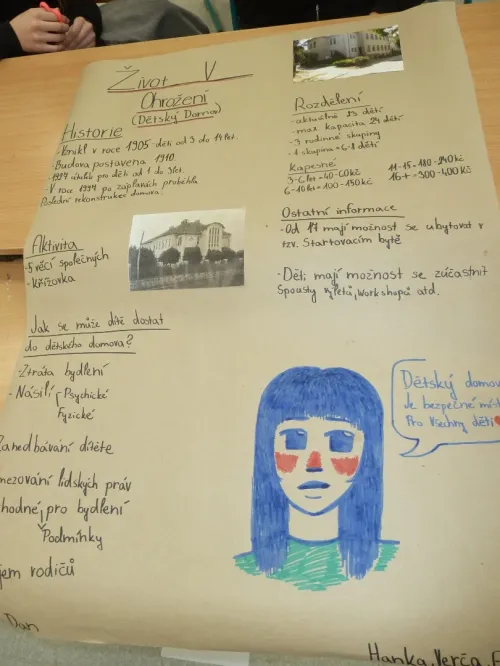 Život V
Ohrožení
(Dětský Domov)
Historie
-Vznikl v roce 1905-děti od 3 do 14 let.
-Budova postavena 1910.
-1984 útulek pro děti od 1 do 3let.
-V roce 1997 po záplavách proběhla
Poslední rekonstrukce domova.
Aktivita
-5 věcí společných
-Křížovka
Jak se může dítě dostat
do dětského domova?
-Ztráta bydlení
-Násilí Psychické
Fyzické
Zanedbávání dítěte
mezování lidských práv
vhodnej pro bydlení
Podmínky
jem rodičů
Dan
Rozdělení
-aktuálně 23 dětí
-max kapacita 24 dětí
-3 rodinné skupiny
-1 skupina=6-8 dětí
Kapesné
3-6 let=40-60kč
6-10 let=100-150kč
11-15-180-240kč
16+=300-400kč
Ostatní informace
-Od 17 mají možnost se ubytovat v
tzv. Startovacím bytě
-Děti mají možnost se zúčastnit
Spousty výletů, workshopů atd.
Dětský domov
Je bezpečné míst
Pro Všechny děti
Hanka, Verča, E